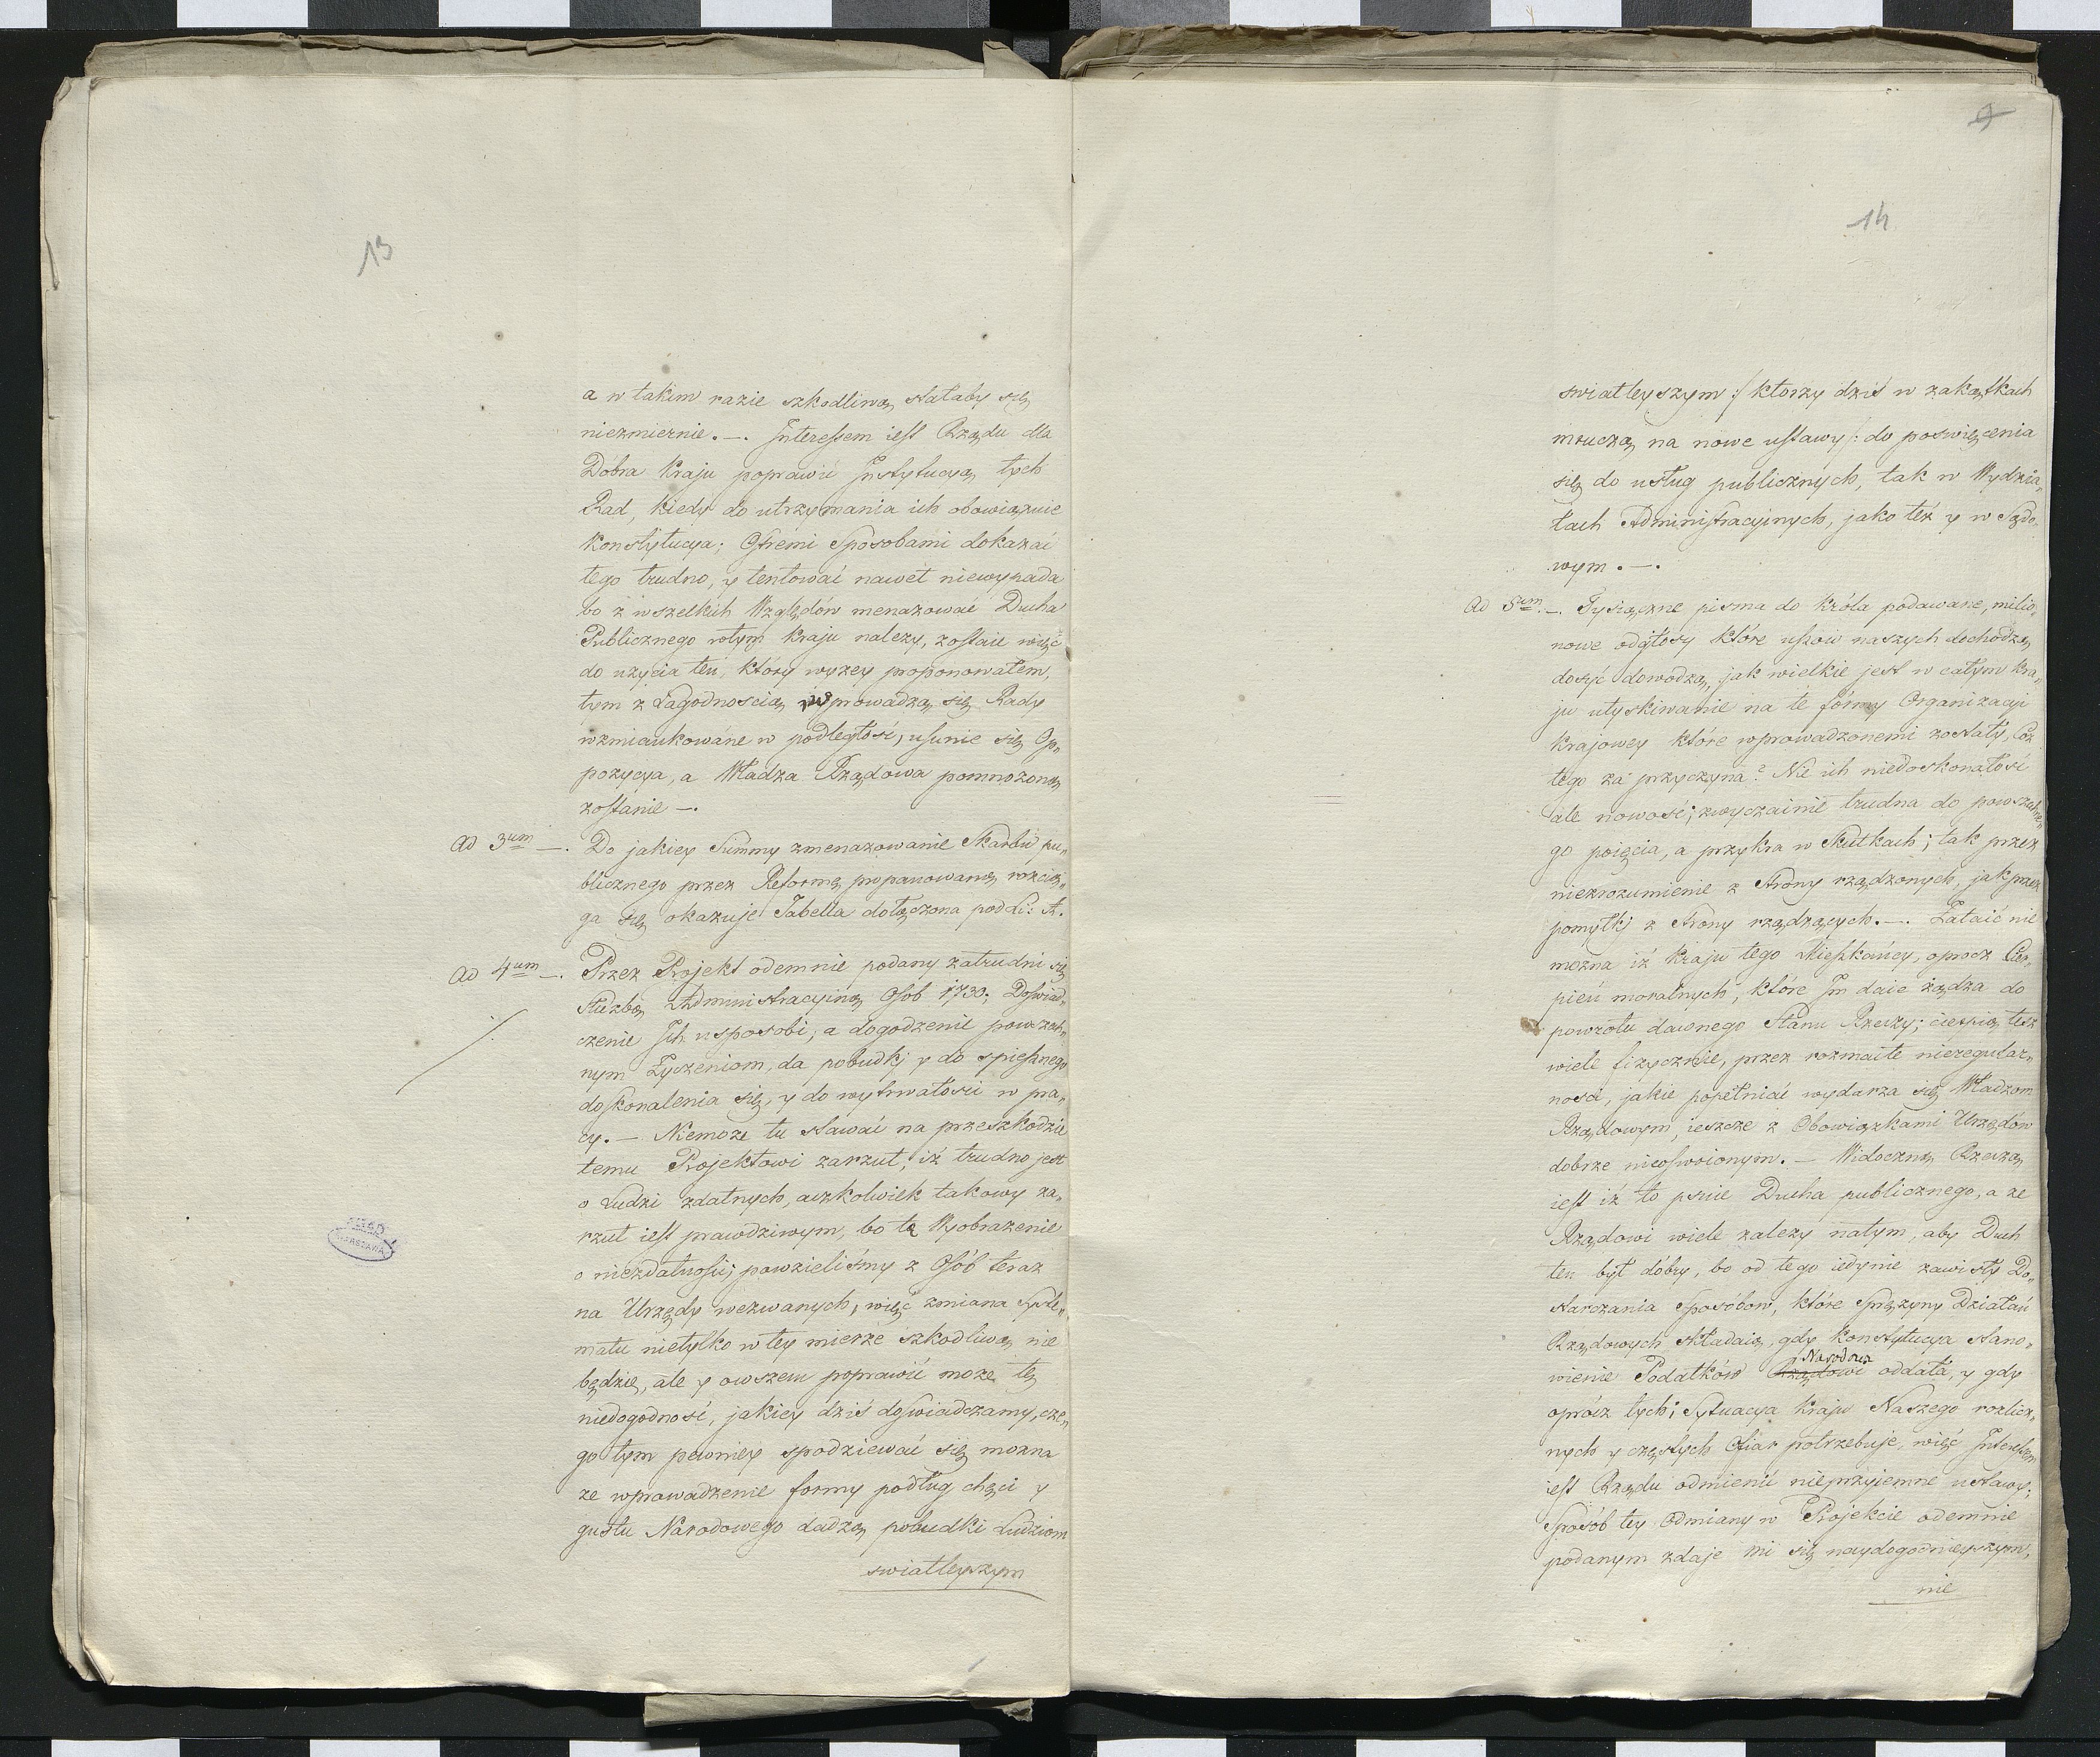 13
a w takim razie szkodliwą stałaby się
niezmiernie. —. Interessem iest Rządu dla
Dobra Kraju poprawić Instytucyą tych
Rad, kiedy do utrzymania ich obowiązuie
Konstytucya; Ostremi Sposobami dokazać
tego trudno, y tentować nawet niewypada
bo z wszelkich Względów menażować Ducha
Publicznego wtym Kraju nalezy, zostaie więc
do użycia ten, który wyzey proponowałem,
tym z Łagodnoscią wprowadzą się Rady
wzmiankowane w podległość, usunie się Op„
pozycya, a Władza Rządowa pomnozoną
zostanie —.
Ad 3um —. Do jakiey Summy zmenazowanie Skarbu pu„
blicznego przez Reformę proponowaną rozcią„
ga się okazuje Tabella dołączona pod Li: A.
Ad 4um —. Przez Projekt odemnie podany zatrudni się
Służbą Administracyiną Osob 1730; Doświad„
czenie Ich usposobi, a dogodzenie powszech„
nym Zyczeniom, da pobudkj y do spiesznego
doskonalenia się, y do wytrwałości w pra„
cy. — Niemoze tu stawać na przeszkodzie
temu Projektowi zarzut, iż trudno jest
o Ludzi zdatnych, aczkolwiek takowy za„
rzut iest prawdziwym, bo te Wyobrazenie
o niezdatności powzieliśmy z Osób teraz
na Urzędy wezwanych, więc zmiana Syste„
matu nietylko w tey mierze szkodliwą nie
będzie, ale y owszem poprawić moze tę
niedogodność, jakiey dziś doświadczamy, cze„
go tym pewniey spodziewać się mozna
ze wprowadzenie formy podług chęci y
gustu Narodowego dadzą pobudki Ludziom
swiatleyszym
14
swiatleyszym /: ktorzy dziś w zakątkach
mruczą na nowe ustawy :/ do poswięcenia
się do usług publicznych, tak w Wydzia„
łach Administracyinych, jako też y w Sądo„
wym. —.
Ad 5um —. Tysiączne pisma do Króla podawane, milio„
nowe odgłosy które uszów naszych dochodzą
dosyć dowodzą, jak wielkie jest w całym Kra„
ju utyskiwanie na te formy Organizacyi
Krajowey które wprowadzonemi zostały, Coż
tego za przyczyna? Nie ich niedoskonałość
ale nowość; zwyczainie trudna do powszechne„
go poięcia, a przykra w Skutkach; tak przez
niezrozumienie z Strony rządzonych, jak przez
pomyłkj z Strony rządzących. —. Zataić nie
mozna iż Kraju tego Mieszkańcy, oprocz Cier„
pień moralnych, które Im daie żądza do
powrotu dawnego Stanu Rzeczy; cierpią tesz
wiele fizycznie, przez rozmaite nieregular„
nosci, jakie popełniać wydarza się Władzom
Rządowym, ieszcze z Obowiązkami Urzędów
dobrze nieoswoionym. — Widoczną Rzeczą
iest iż to psuie Ducha publicznego, a ze
Rządowi wiele zalezy natym, aby Duch
ten był dobry, bo od tego iedynie zawisły Do„
starczania Sposóbow, które Sprężyny Działań
Rządowych składaią, gdy Konstytucya Stano„
Narodowi
wienie Podatków Rządowi oddała, y gdy
oprócz tych; Sytuacya Kraju Naszego rozlicz„
nych y częstych Ofiar potrzebuje, więc Interessem
iest Rządu odmienić nieprzyiemne ustawy;
Sposób tey Odmiany w Projekcie odemnie
podanym zdaje mi się naydogodnieyszym,
nie